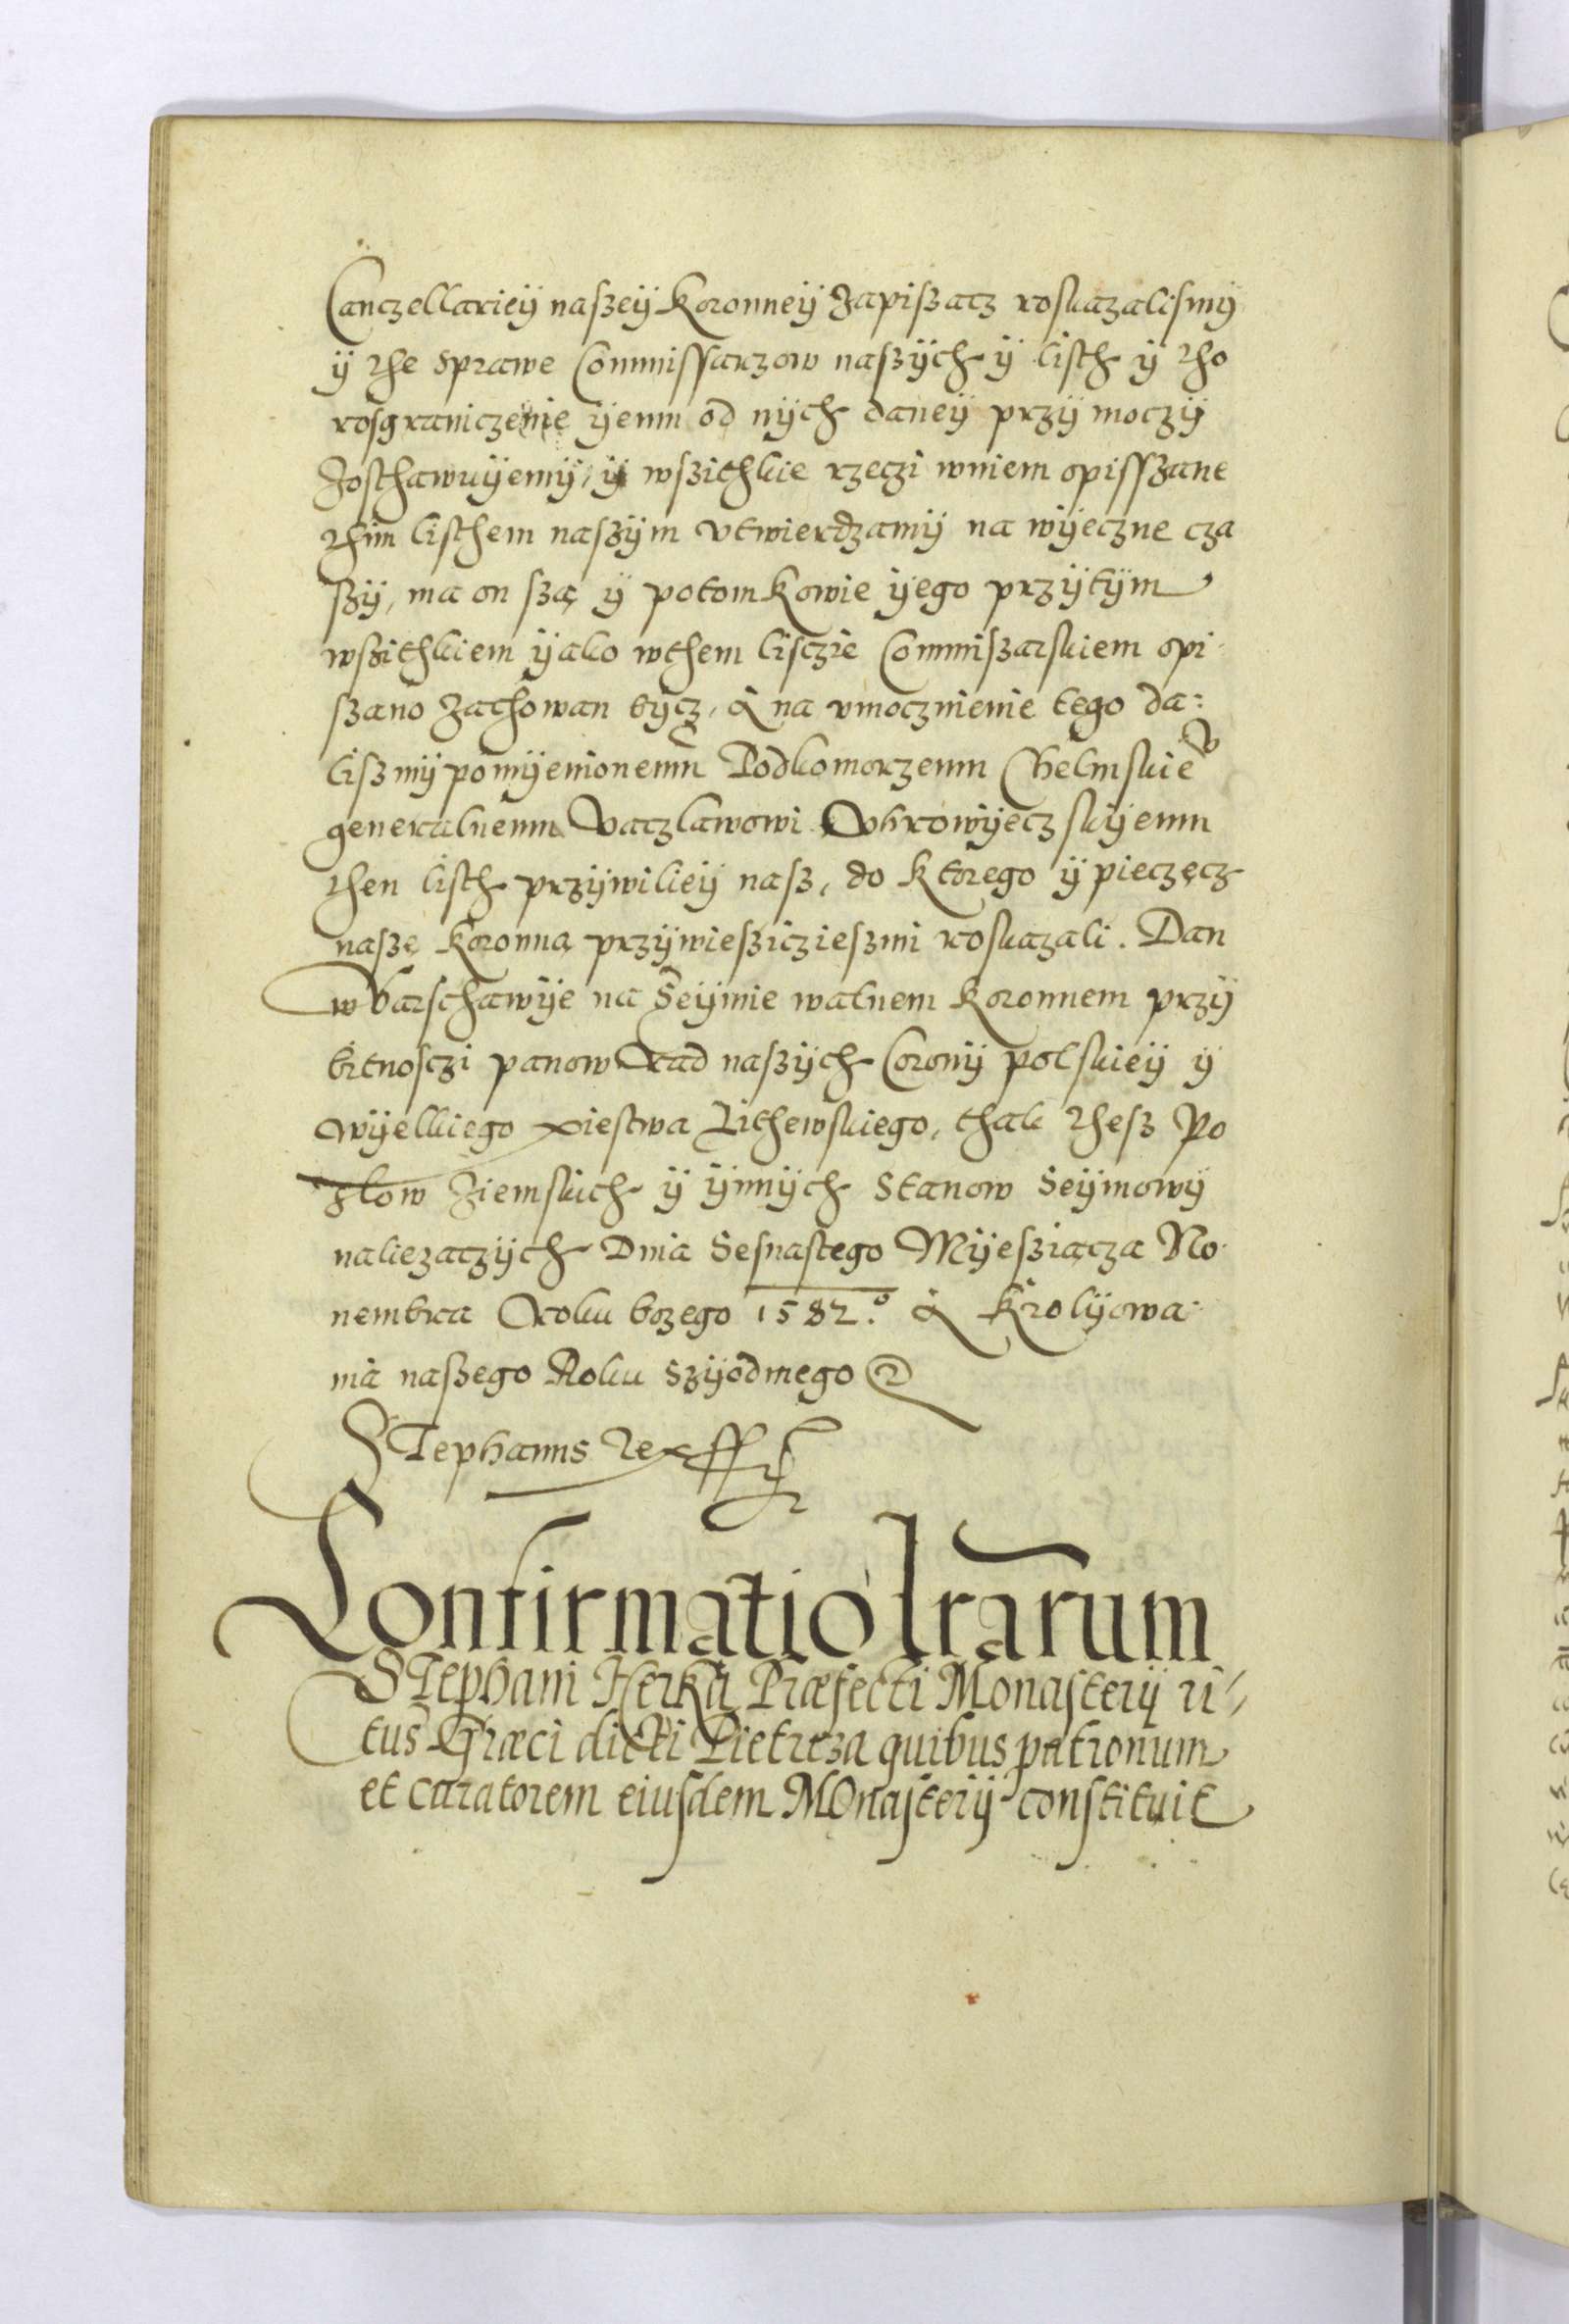 Canczellariey naszey Koronney Zapiszacz roskazalismÿ
ÿ the sprawe Commissarzow naszÿch ÿ listh ÿ tho
rosgraniczenie ÿemu od nÿch daneÿ przÿ moczÿ
Zosthawuÿemÿ, ÿ wszithkie rzeczi wniem opisszane
thim listhem naszÿm vtwierdzamÿ na wÿeczne cza
szÿ, ma on sza ÿ potomkowie ÿego przÿtÿm
wszithkiem ÿako wthem lisczie Commiszarskiem opi
szano zachowan bÿcz, A na vmocznienie tego da:
liszmÿ pomÿenionemu Podkomorzemu Chelmskie
generalnemu Vaczlawowi Vhrowÿeczskÿemu
then listh przÿwilieÿ nasz, do ktorego ÿ pieczęcz
naszę Koronną przÿwiesziczieszmi roskazali. Dan
w Varschawÿe na Seÿmie walnem Koronnem przÿ
bitnosczi panow Rad naszÿch Coronÿ polskieÿ ÿ
wÿelkiego xiestwa Lithewskiego, thak thesz Po
slow Ziemskich ÿ ÿnnÿch Stanow Seÿmowÿ
naliezaczÿch Dnia Sesnastego Mÿesziącza No
nembra Roku bozego 1582.º A Krolÿowa:
nia naszego Roku Szÿodmego
Stephanus Rex ssst
Confirmatio lrarum
Stephani Herka Præfecti Monasterij ri
tus Græci dicti Pietreza quibus patronum
et curatorem eiusdem Monasterij constituit